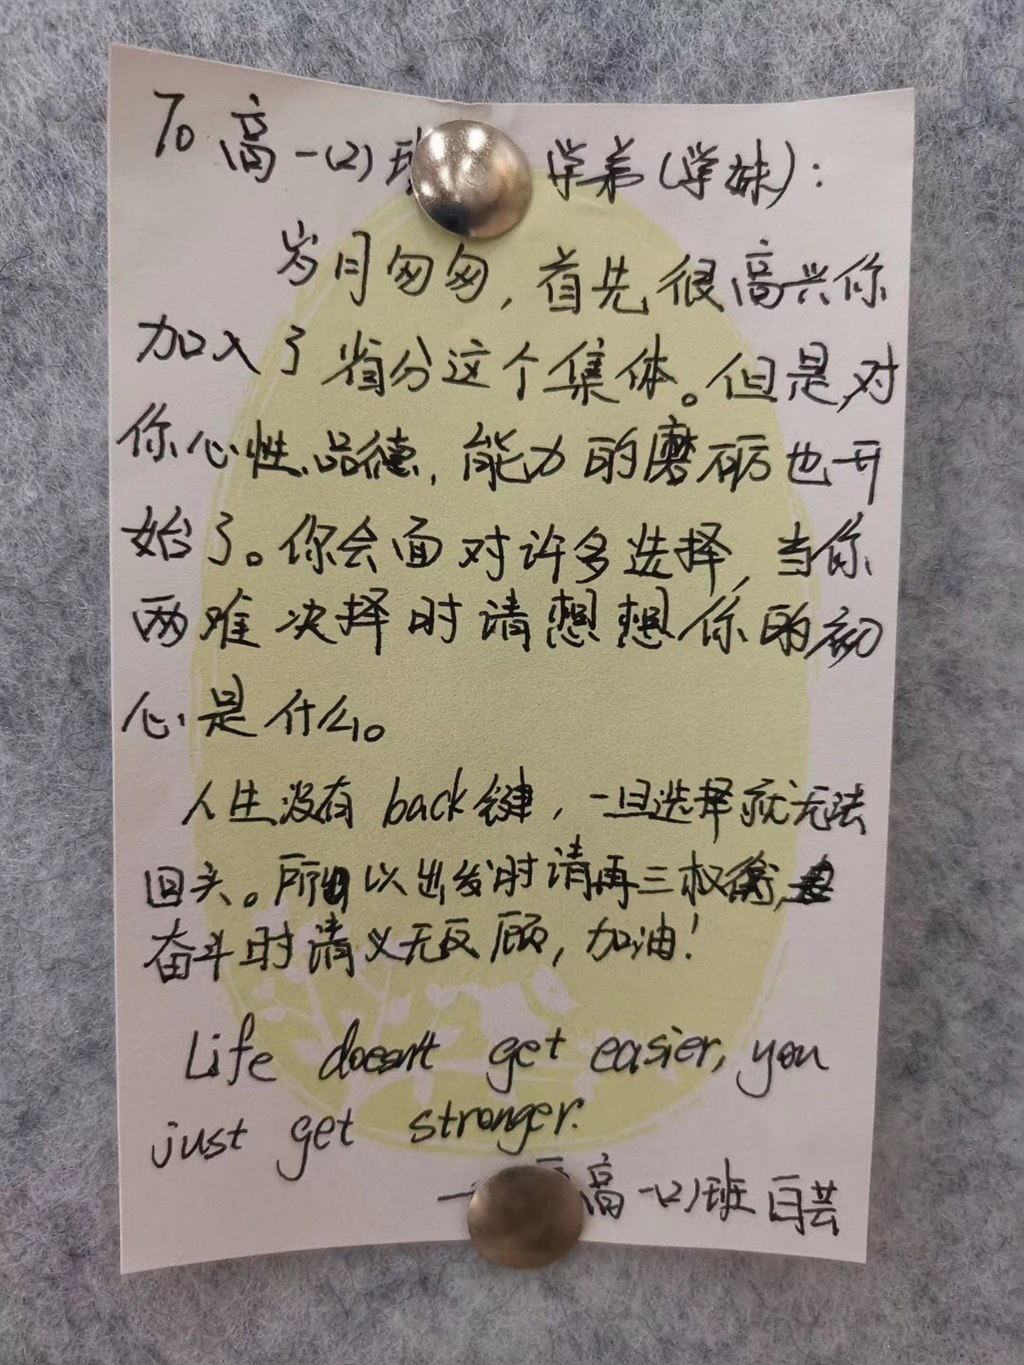 To 高一(2)班 学弟(学妹):
岁月匆匆,首先很高兴你
加入了省分这个集体。但是,对
你心性、品德,能力的磨砺也开
始了。你会面对许多选择,当你
两难决择时请想想你的初
心是什么。
人生没有back键,一旦选择就无法
回头。所以出发时请再三权衡,
奋斗时请义无反顾,加油!
Life doesn't get easier, you
just get stronger.
高一(2)班 白芸